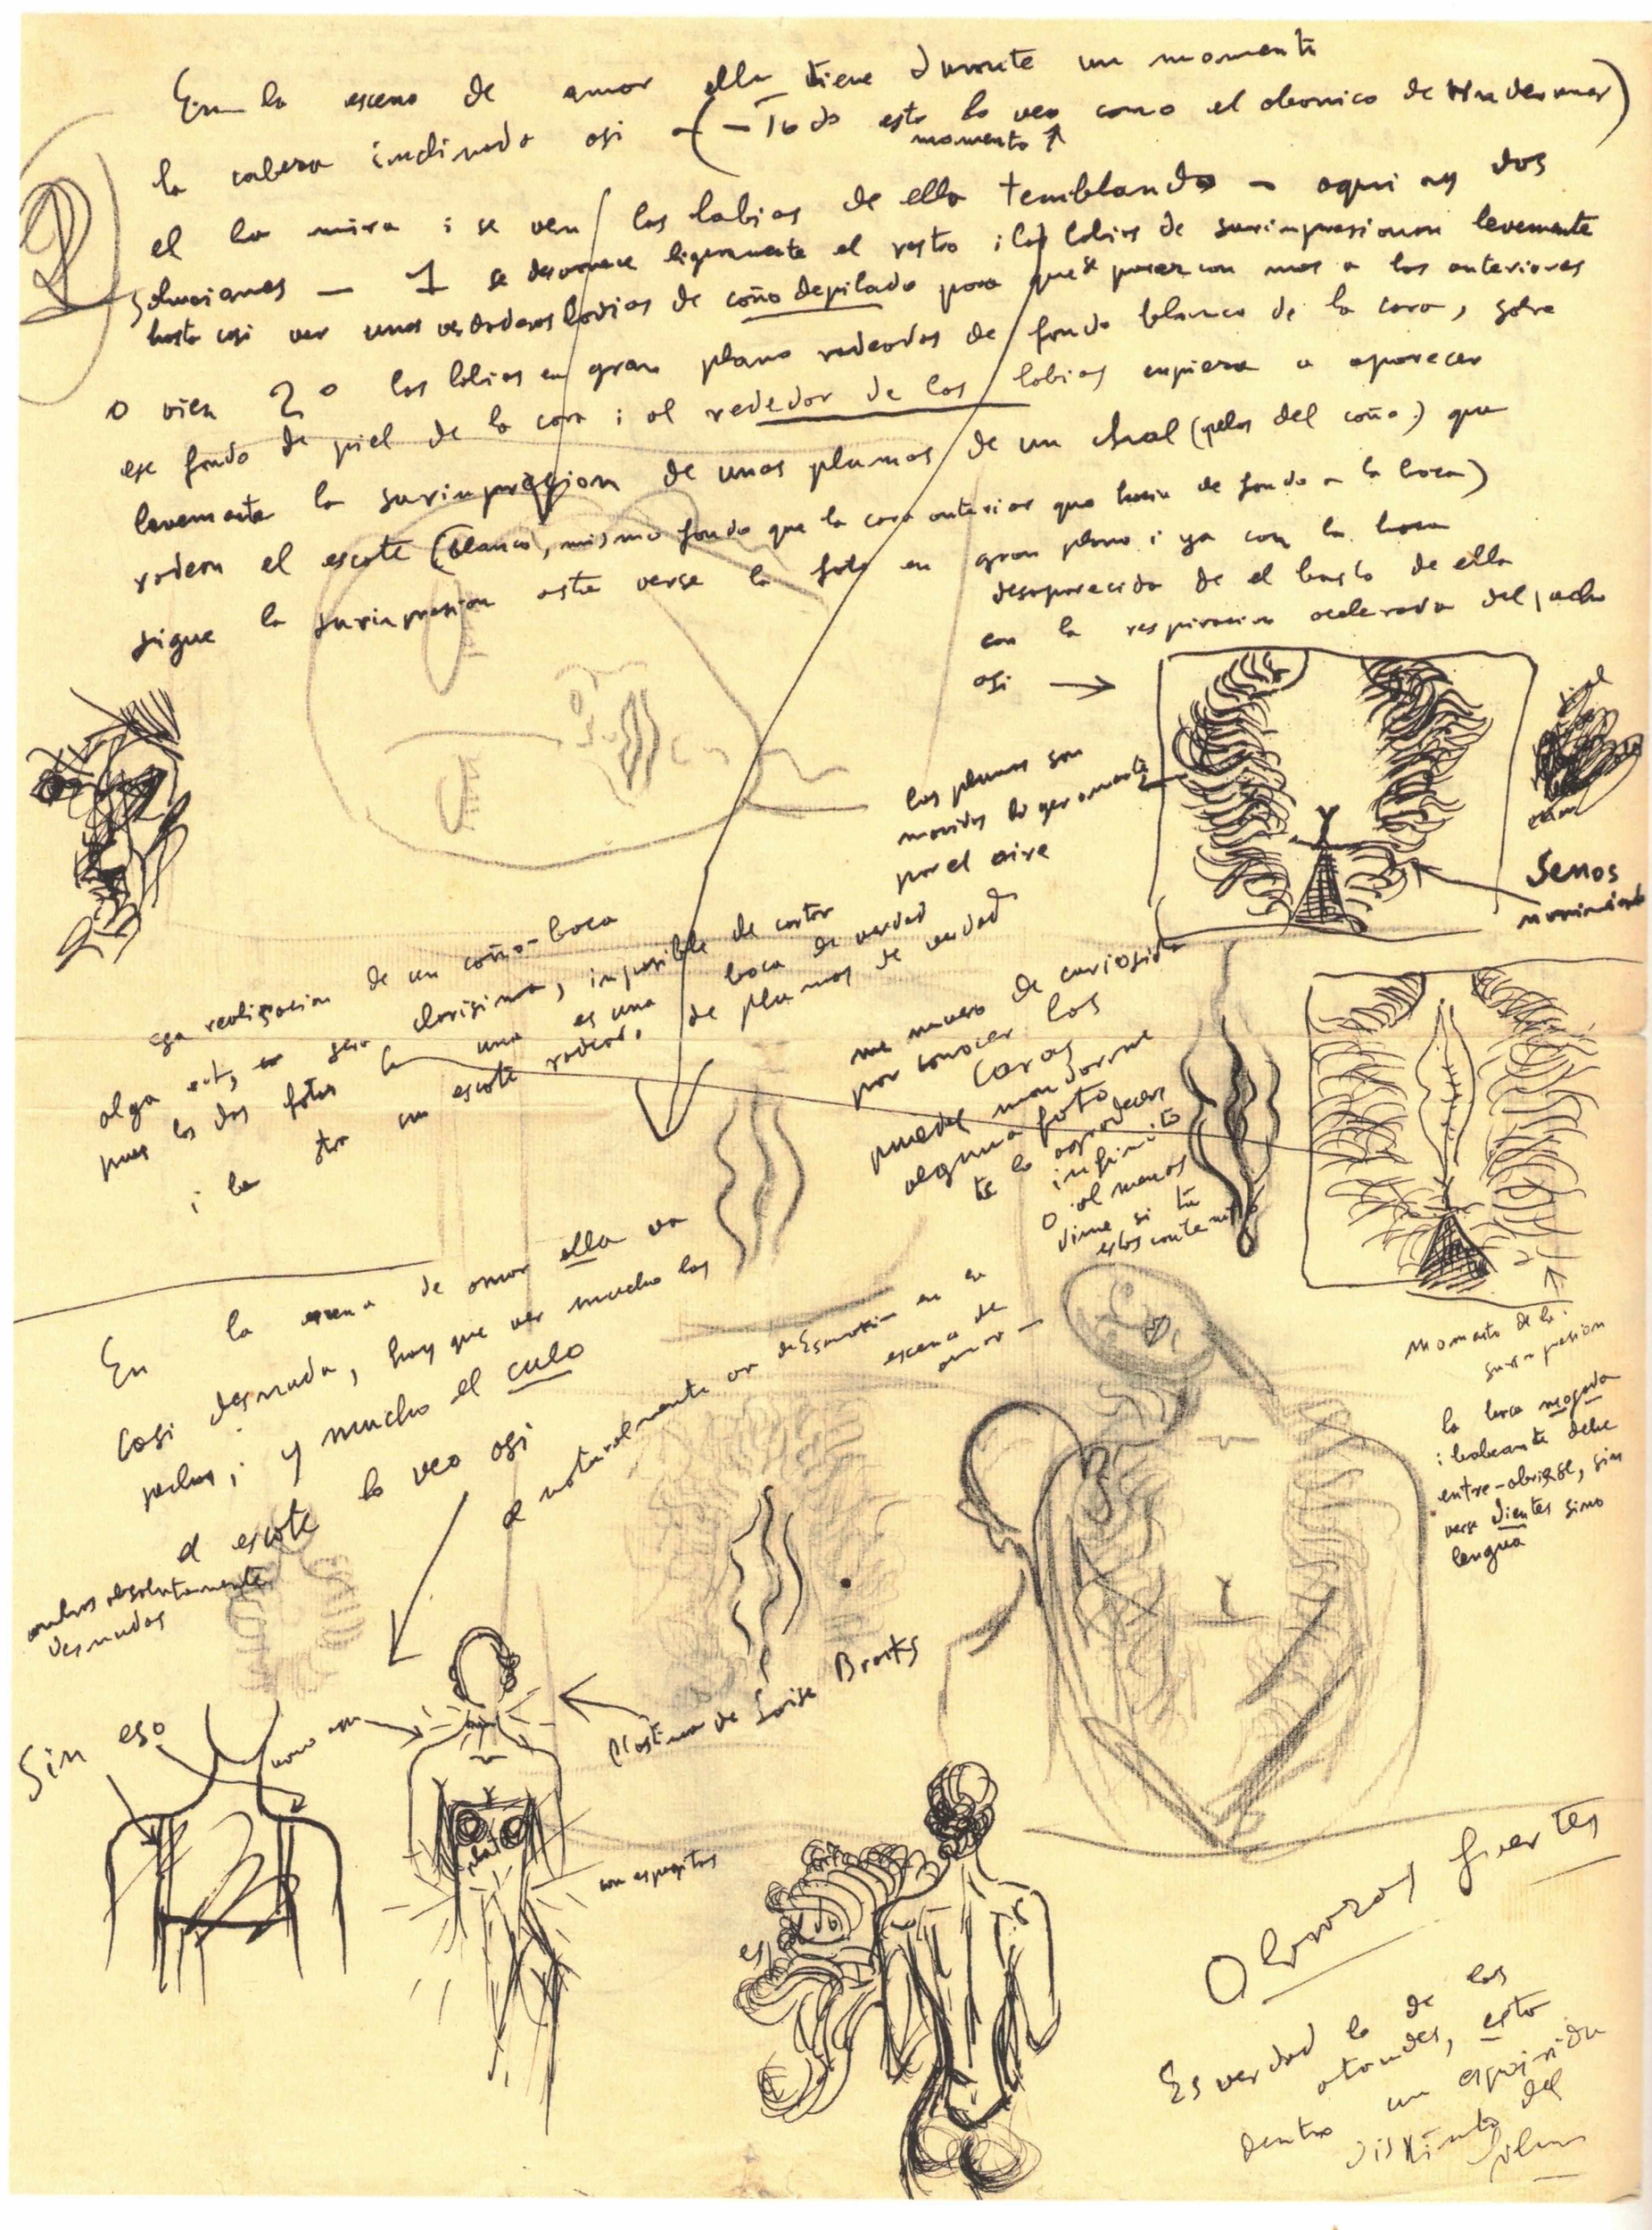 En la escena de amor ella tiene durante un momento
la cabeza inclinada asi (- Todo esto lo veo como el abanico de
momento
el la mira i se ven los labios de ella temblando - aqui ay dos
soluciones - 1 se desvanece ligeramente el rostro i los labios de surimpresionan levemente
hasta casi ver unos verdaderos labios de coño depilado para que se parezcan mas a los anteriores
o vien 2º los labios en gran plano rodeados de fondo blanco de la cara, sobre
ese fondo de piel de la cara i al rededor de los labios enpieza a aparecer
levemente la surinpresion de unas plumas de un chal (pelos del coño) que
rodean el escote (blanco, mismo fondo que la cara anterior que hacia de fondo a la boca)
sigue la surinpresion asta verse la foto en gran plano i ya con la boca
desaparecida de el busto de ella
con la respiracion acelerada del pecho
asi
las plumas son
movidas ligeramente
por el aire
Senos
movimiento
esa realisacion de un coño-boca
alga est, sera clarisima, imposible de cortar
pues las dos fotos la una es una boca de verdad
i la otra un escote rodeado de plumas de verdad
me muero de curiosidad
por conocer las
caras
puedes mandarme
alguna foto
te lo agradecere
infinito
o al menos
dime si tu
estas contento
momento de la
surinpresion
la boca mojada
i babeante debe
entre-abrirse, sin
verse dientes sino
lengua
En la escena de amor ella va
casi desnuda, hay que ver mucho los
pechos, i y mucho el culo
el escote lo veo asi
naturalmente en la
escena de
amor -
ambos absolutamente
desnudos
Sin eso
como
Plastica de Loise Brooks
plata
con espejitos
Olvorosas fuertes
Es verdad lo de los
atandes, esto
dentro un
distinto del
film